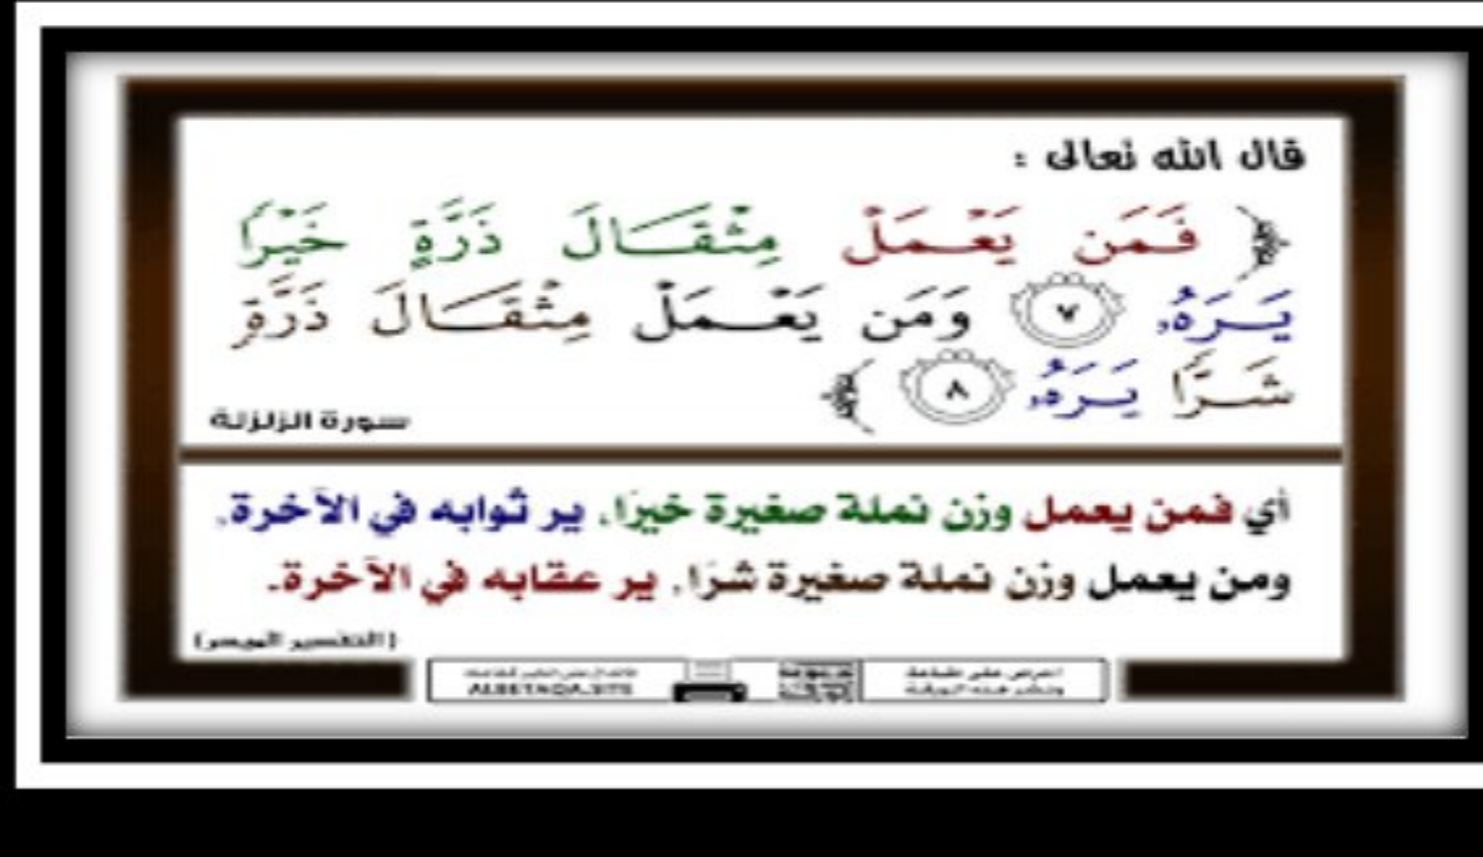 قال الله تعالى :
﴿ فَمَن يَعْمَلْ مِثْقَالَ ذَرَّةٍ خَيْرًا
يَرَهُۥ ٧ وَمَن يَعْمَلْ مِثْقَالَ ذَرَّةٍ
شَرًّا يَرَهُۥ ٨ ﴾
سورة الزلزلة
أي فمن يعمل وزن نملة صغيرة خيرًا، ير ثوابه في الآخرة.
ومن يعمل وزن نملة صغيرة شرًا، ير عقابه في الآخرة.
(التفسير الميسر)
احرص على طباعة
ونشر هذه البطاقة
ALBETAQA.SITE